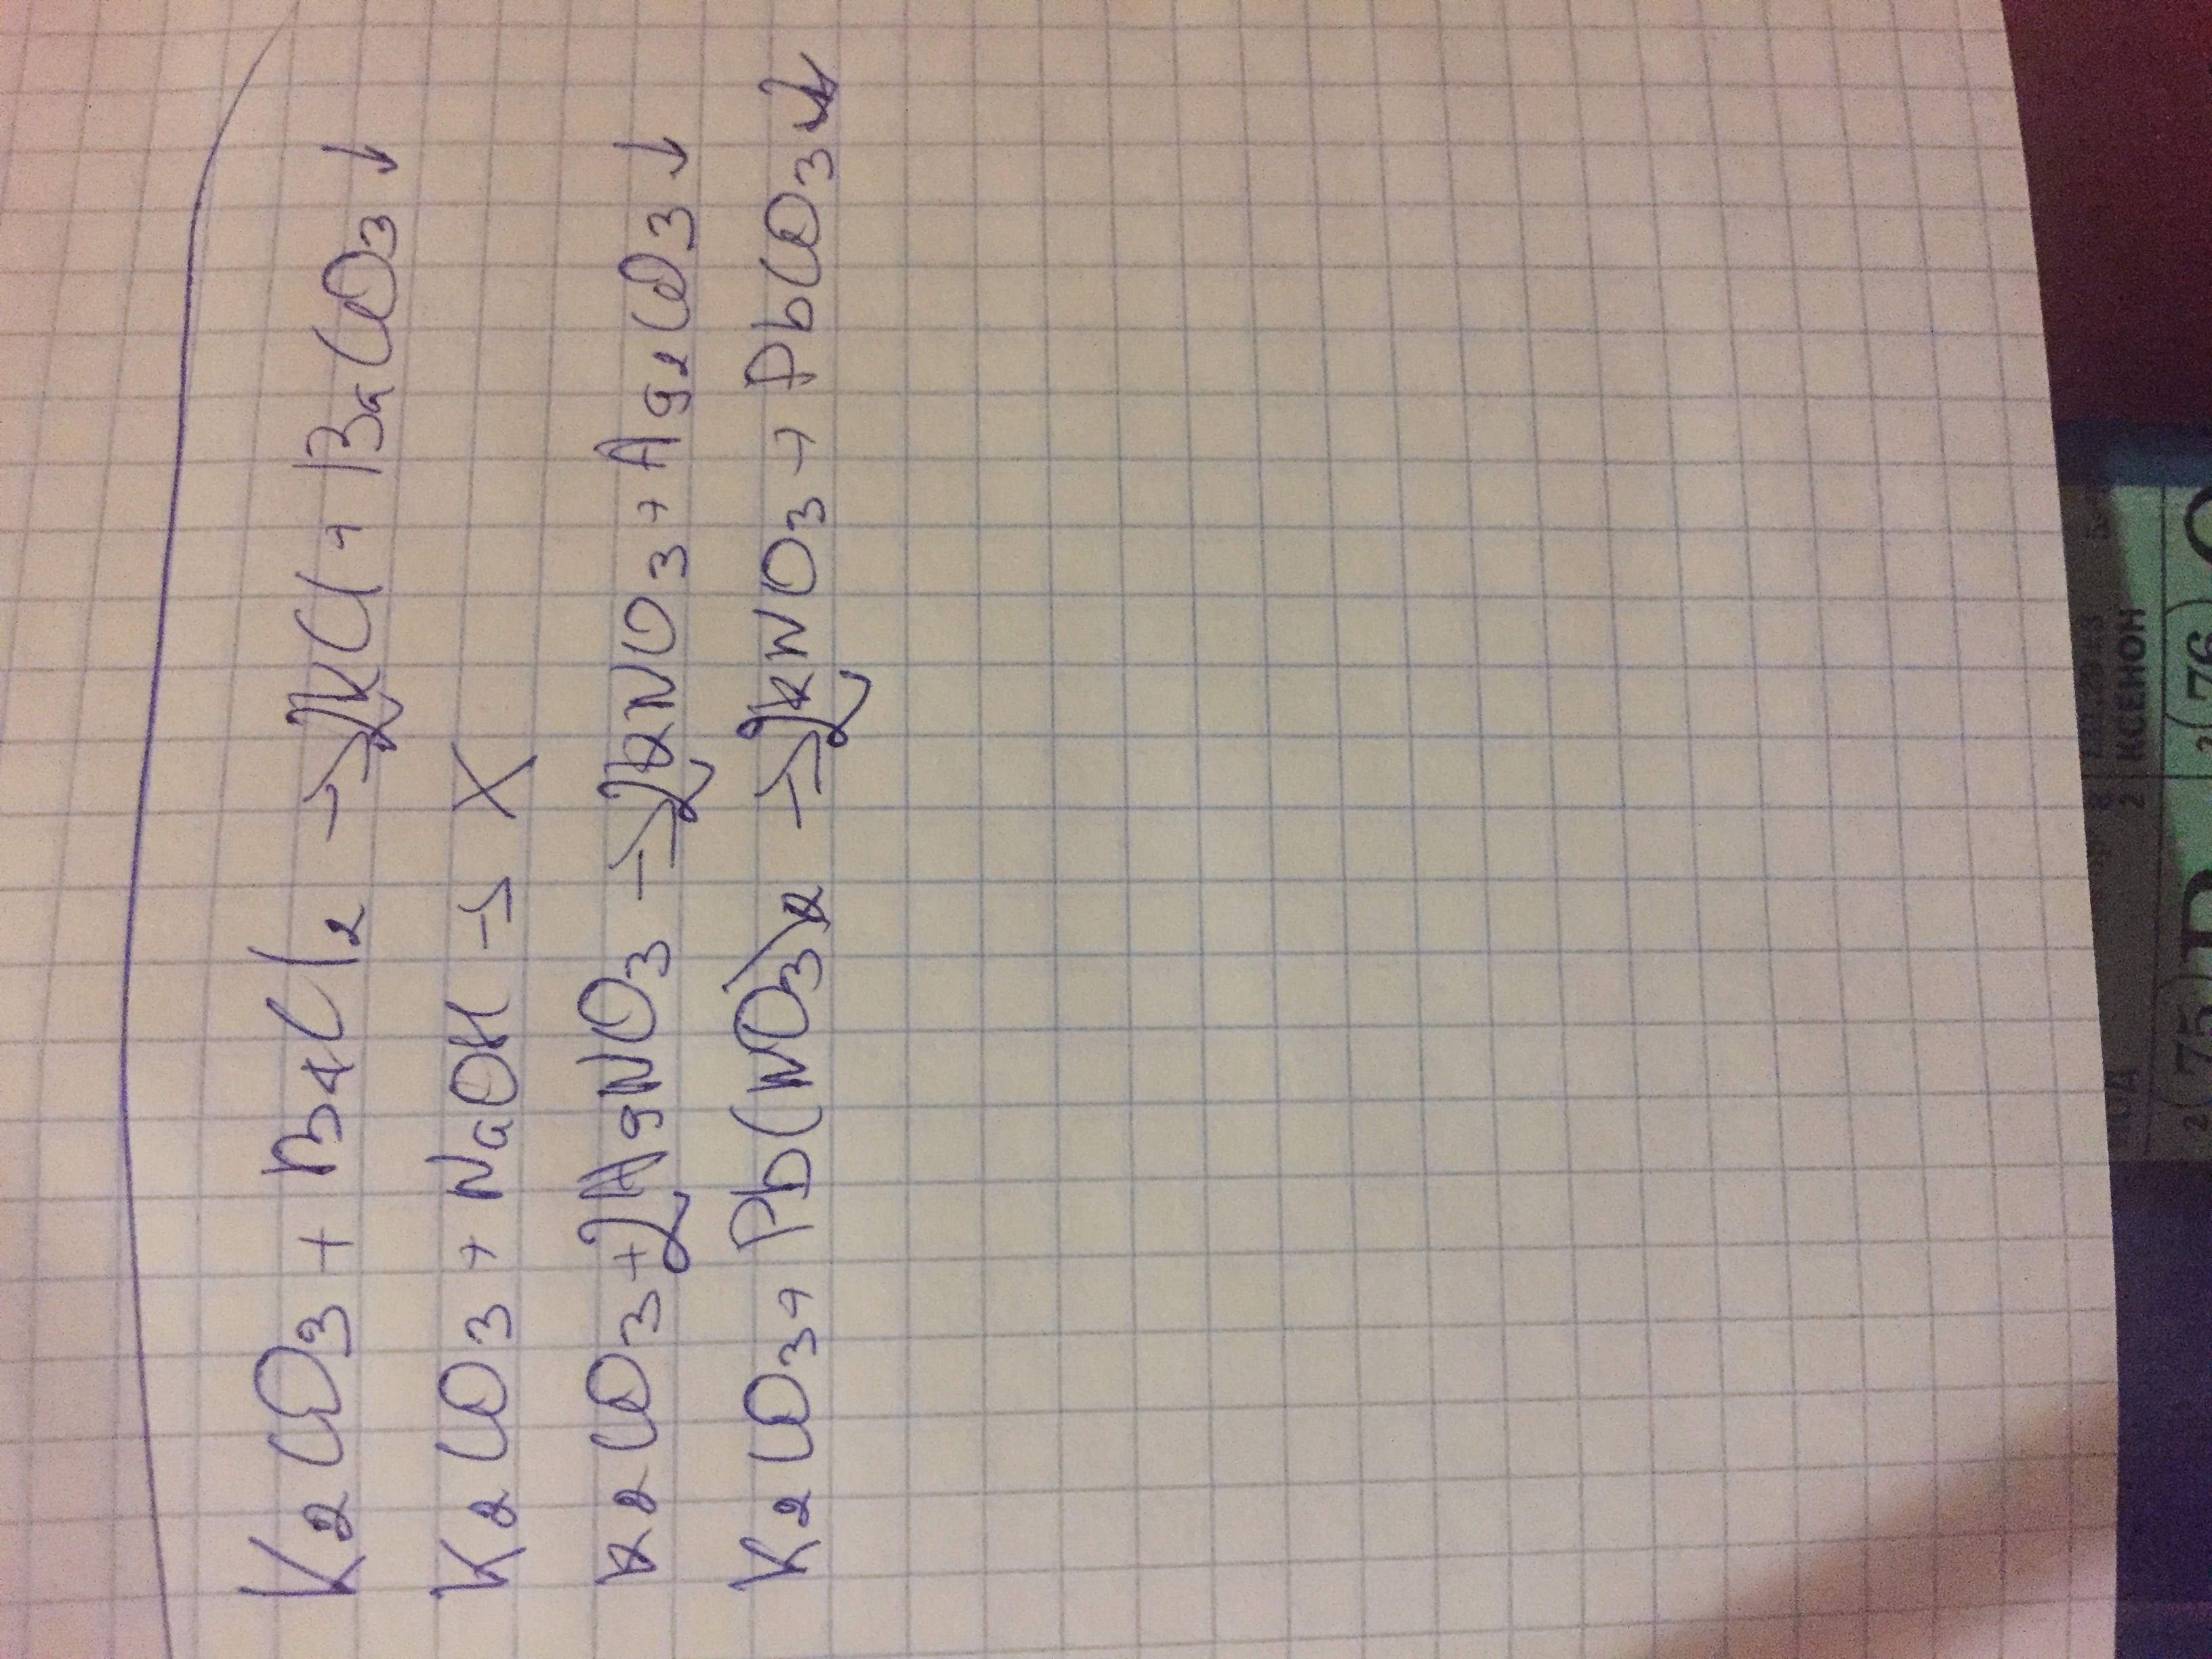 K₂CO₃ + BaCl₂ → 2KCl + BaCO₃ ↓
K₂CO₃ + NaOH → X
K₂CO₃ + 2AgNO₃ → 2KNO₃ + Ag₂CO₃ ↓
K₂CO₃ + Pb(NO₃)₂ → 2KNO₃ + PbCO₃ ↓
2 КСЕНОН
2 (75)
2 (76)